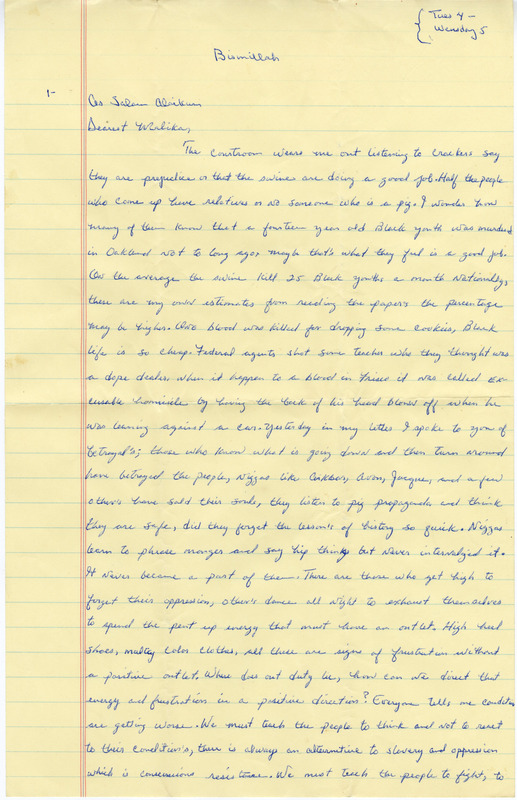 Tues 4 -
Wensday 5
Bismillah
1-
As Salam Alaikum
Dearest Malika,
The courtroom wears me out listening to crackers say
they are prejudice or that the swines are doing a good job. Half the people
who come up have relatives or no someone who is a pig. I wonder how
many of them know that a fourteen year old Black youth was murdered
in Oakland not to long ago, maybe that's what they feel is a good job.
On the average the swine kill 25 Black youths a month nationally,
these are my own estimates from reading the papers the percentage
may be higher. One blood was killed for dropping some cookies, Black
life is so cheap. Federal agents shot some teacher who they thought was
a dope dealer, when it happen to a blood in Frisco it was called ex-
cusable homicide by having the back of his head blown off when he
was leaning against a car. Yesterday in my letter I spoke to you of
betrayal's; those who know what is going down and then turn around
have betrayed the people, Niggas like Avon, Jacque, and a few
other's have sold their souls, they listen to pig propaganda and think
they are safe, did they forget the lesson's of history so quick. Niggas
learn to phrase monger and say hip things but never internalized it.
It never became a part of them. There are those who get high to
forget their oppression, other's dance all night to exhaust themselves
to spend the pent up energy that must have an outlet. High heel
shoes, multy color clothes, all these are signs of frustration without
a positive outlet. Where does our duty lie, how can we direct that
energy and frustration in a positive direction? Everyone tells me condition
are getting worse. We must teach the people to think and not to react
to their condition's, there is always an alternative to slavery and oppression
which is conscious resistance. We must teach the people to fight, to